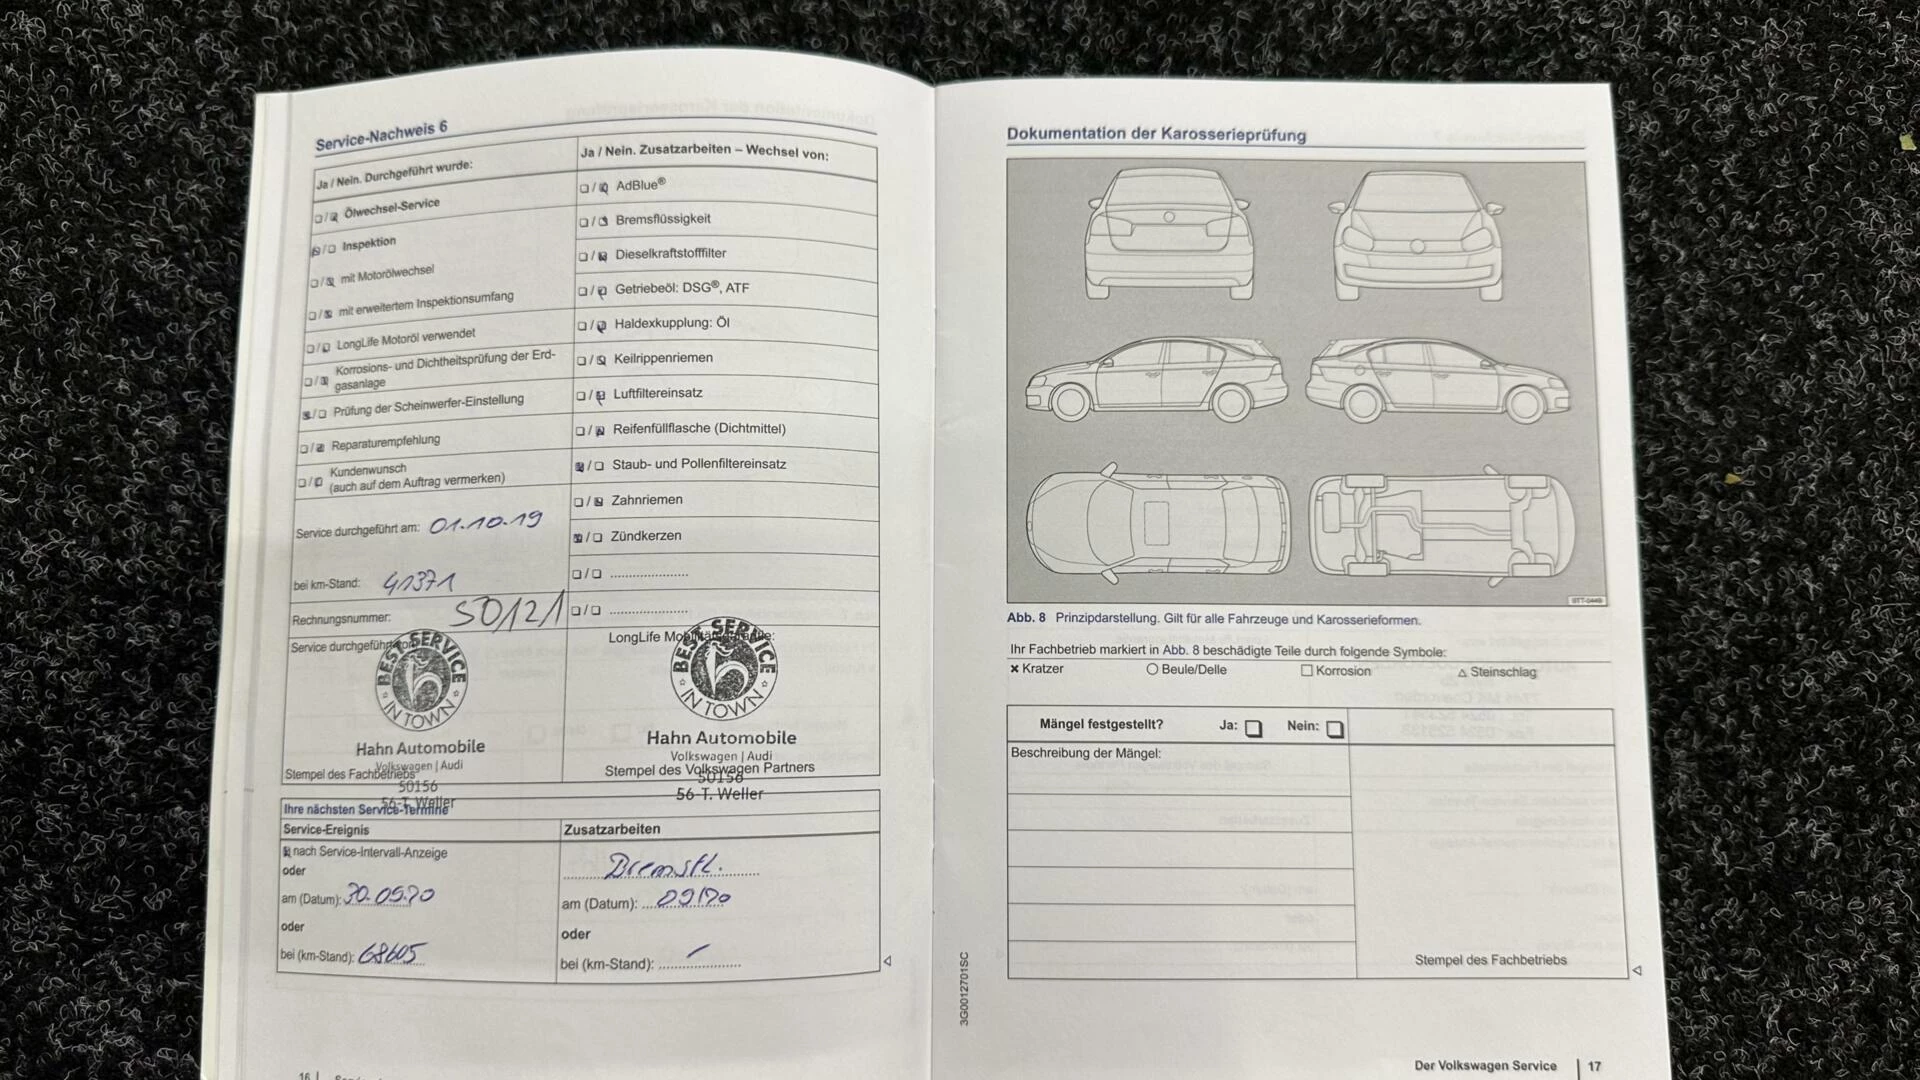 Service-Nachweis 6
Ja / Nein. Durchgeführt wurde:
Ölwechsel-Service
Inspektion
mit Motorölwechsel
mit erweitertem Inspektionsumfang
LongLife Motoröl verwendet
Korrosions- und Dichtheitsprüfung der Erd-
gasanlage
Prüfung der Scheinwerfer-Einstellung
Reparaturempfehlung
Kundenwunsch
(auch auf dem Auftrag vermerken)
Service durchgeführt am: 01.10.19
bei km-Stand: 41371
Rechnungsnummer: SO121
Service durchgeführt
BEST SERVICE
IN TOWN
Hahn Automobile
Volkswagen | Audi
Stempel des Fachbetriebs
50156
56-T. Weller
Ja / Nein. Zusatzarbeiten – Wechsel von:
AdBlue®
Bremsflüssigkeit
Dieselkraftstofffilter
Getriebeöl: DSG®, ATF
Haldexkupplung: Öl
Keilrippenriemen
Luftfiltereinsatz
Reifenfüllflasche (Dichtmittel)
Staub- und Pollenfiltereinsatz
Zahnriemen
Zündkerzen
LongLife Mobilitätsgarantie:
BEST SERVICE
IN TOWN
Hahn Automobile
Volkswagen | Audi
Stempel des Volkswagen Partners
50156
56-T. Weller
Ihre nächsten Service-Termine
Service-Ereignis
nach Service-Intervall-Anzeige
oder
am (Datum): 30.09.20
oder
bei (km-Stand): 68605
Zusatzarbeiten
Bremsfl.
am (Datum): 09/20
oder
bei (km-Stand):
16
3G0012701SC
Dokumentation der Karosserieprüfung
Abb. 8 Prinzipdarstellung. Gilt für alle Fahrzeuge und Karosserieformen.
Ihr Fachbetrieb markiert in Abb. 8 beschädigte Teile durch folgende Symbole:
Kratzer Beule/Delle Korrosion Steinschlag
Mängel festgestellt? Ja: Nein:
Beschreibung der Mängel:
Stempel des Fachbetriebs
Der Volkswagen Service 17